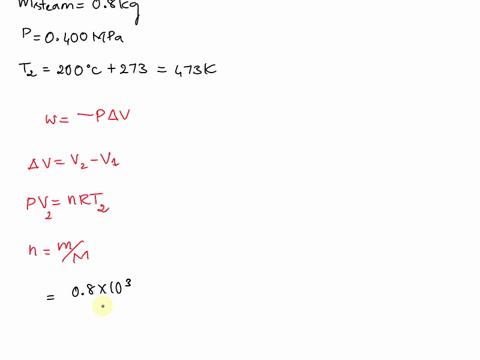 m steam = 0.8 kg
P = 0.400 MPa
T₂ = 200°C + 273 = 473K
w = -PΔV
ΔV = V₂ - V₁
PV₂ = nRT₂
n = m/M
= 0.8 × 10³